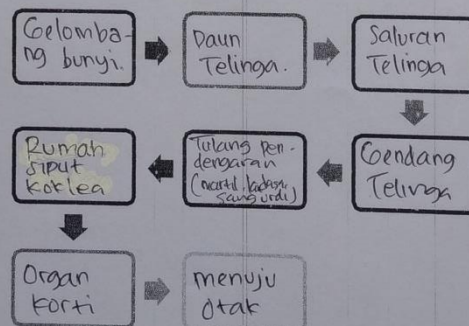 Gelomba-
ng bunyi.
Daun
Telinga.
Saluran
Telinga
Gendang
Telinga
Tulang pen-
dengaran
(martil, landasan,
sanggurdi)
Rumah
siput
koklea
Organ
Korti
menuju
otak